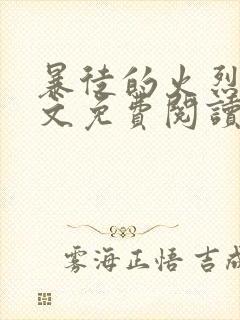 暴徒的火烈
文免費閱讀
雾海正悟 吉成